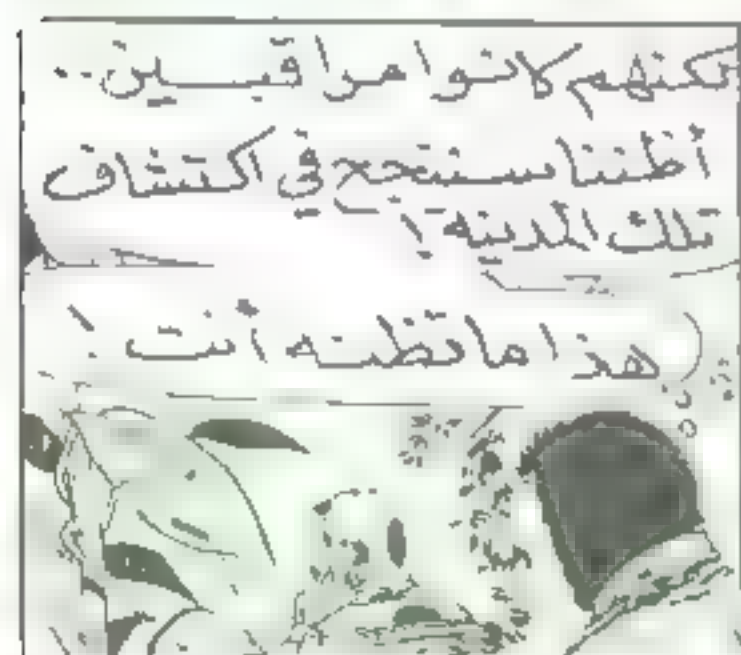 لكنهم كانوا مراقبين..
أظننا سننجح في اكتشاف
تلك المدينة!
هذا ما تظنه أنت!